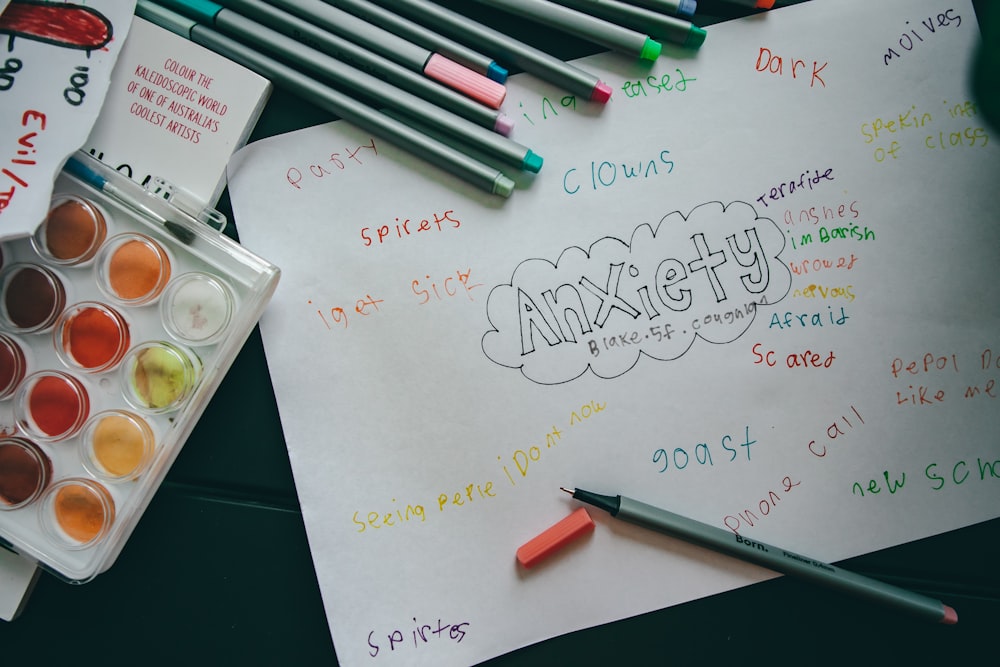 COLOUR THE
KALEIDOSCOPIC WORLD
OF ONE OF AUSTRALIA'S
COOLEST ARTISTS
Evil/
moives
Dark
party
ing eased
clowns
spekin
of class
spirets
terafide
anshes
imBarish
wrower
nervous
Afraid
Scared
iget sick
Anxiety
Blake.sf.coughlin
pepol Do
Like me
seeing peple iDont now
goast
phone call
new scho
Born.
spirtes